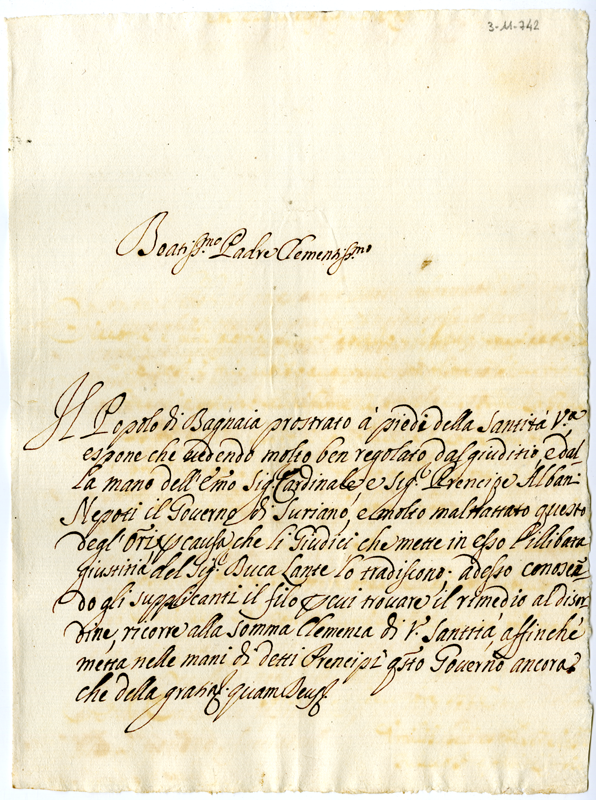 3-11-742
Beatiss.mo Padre Clementiss.mo
Il Popolo di Bagnaia prostrato à piedi della Santità V.ra
espone che vedendo molto ben regolato dal giuditio, e dal
la mano dell'Emo Sig.r Cardinale e Sig.r Prencipe Alban
Nepoti il Governo di Suriano, e molto maltrattato questo
degl' causa che li Giudici che mette in esso l'illibata
giustitia del Sig.r Duca Lante lo tradiscono. adesso conoscen
do gli supplicanti il filo p cui trovare il rimedio al disor
dine, ricorre alla somma Clemenza di V.ra Santità, affinche
metta nelle mani di detti Prencipi qsto Governo ancora
che della gratia. quam Deus